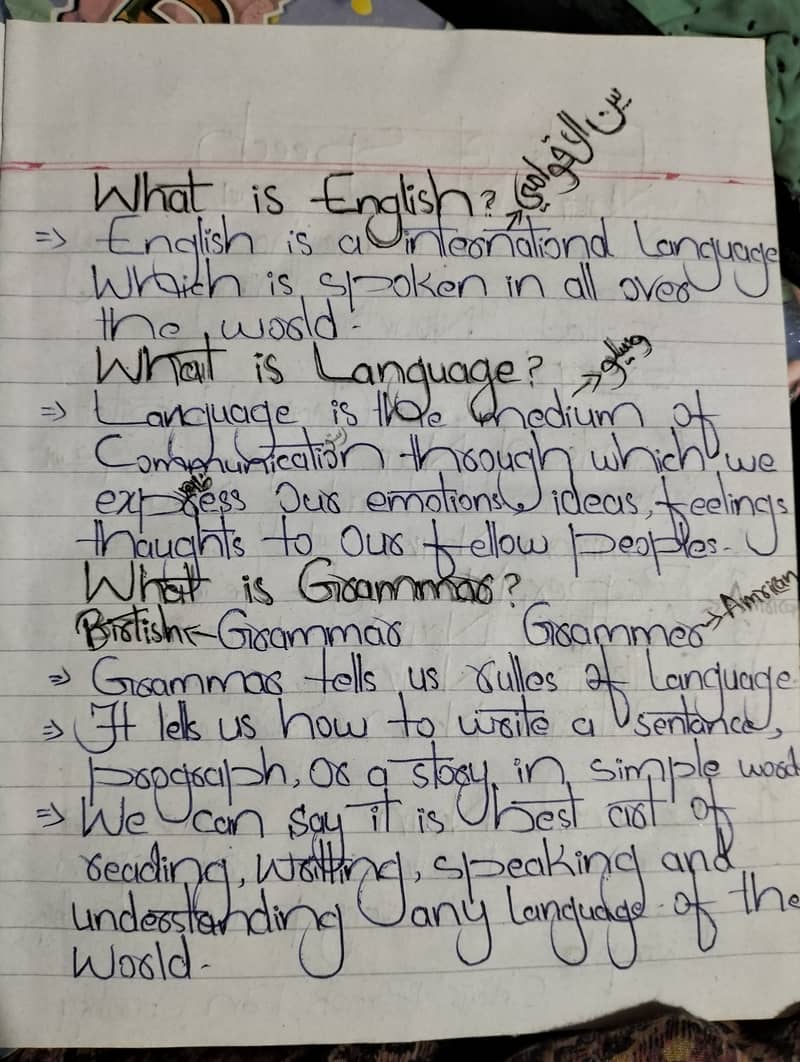 What is English? بین الاقوامی
⇒ English is a internationd language
Which is spoken in all over
the world.
What is Language? → وسیلہ
⇒ Language is the medium of
Communication through which we
express our emotions, ideas, feelings
thoughts to our fellow peoples.
What is Grammar?
British ← Grammar Grammer → Amrican
⇒ Grammar tells us rulles of language
⇒ It lells us how to write a sentance,
prograph, or a story in simple word
⇒ We can say it is best art of
reading, writting, speaking and
understanding any language of the
World.